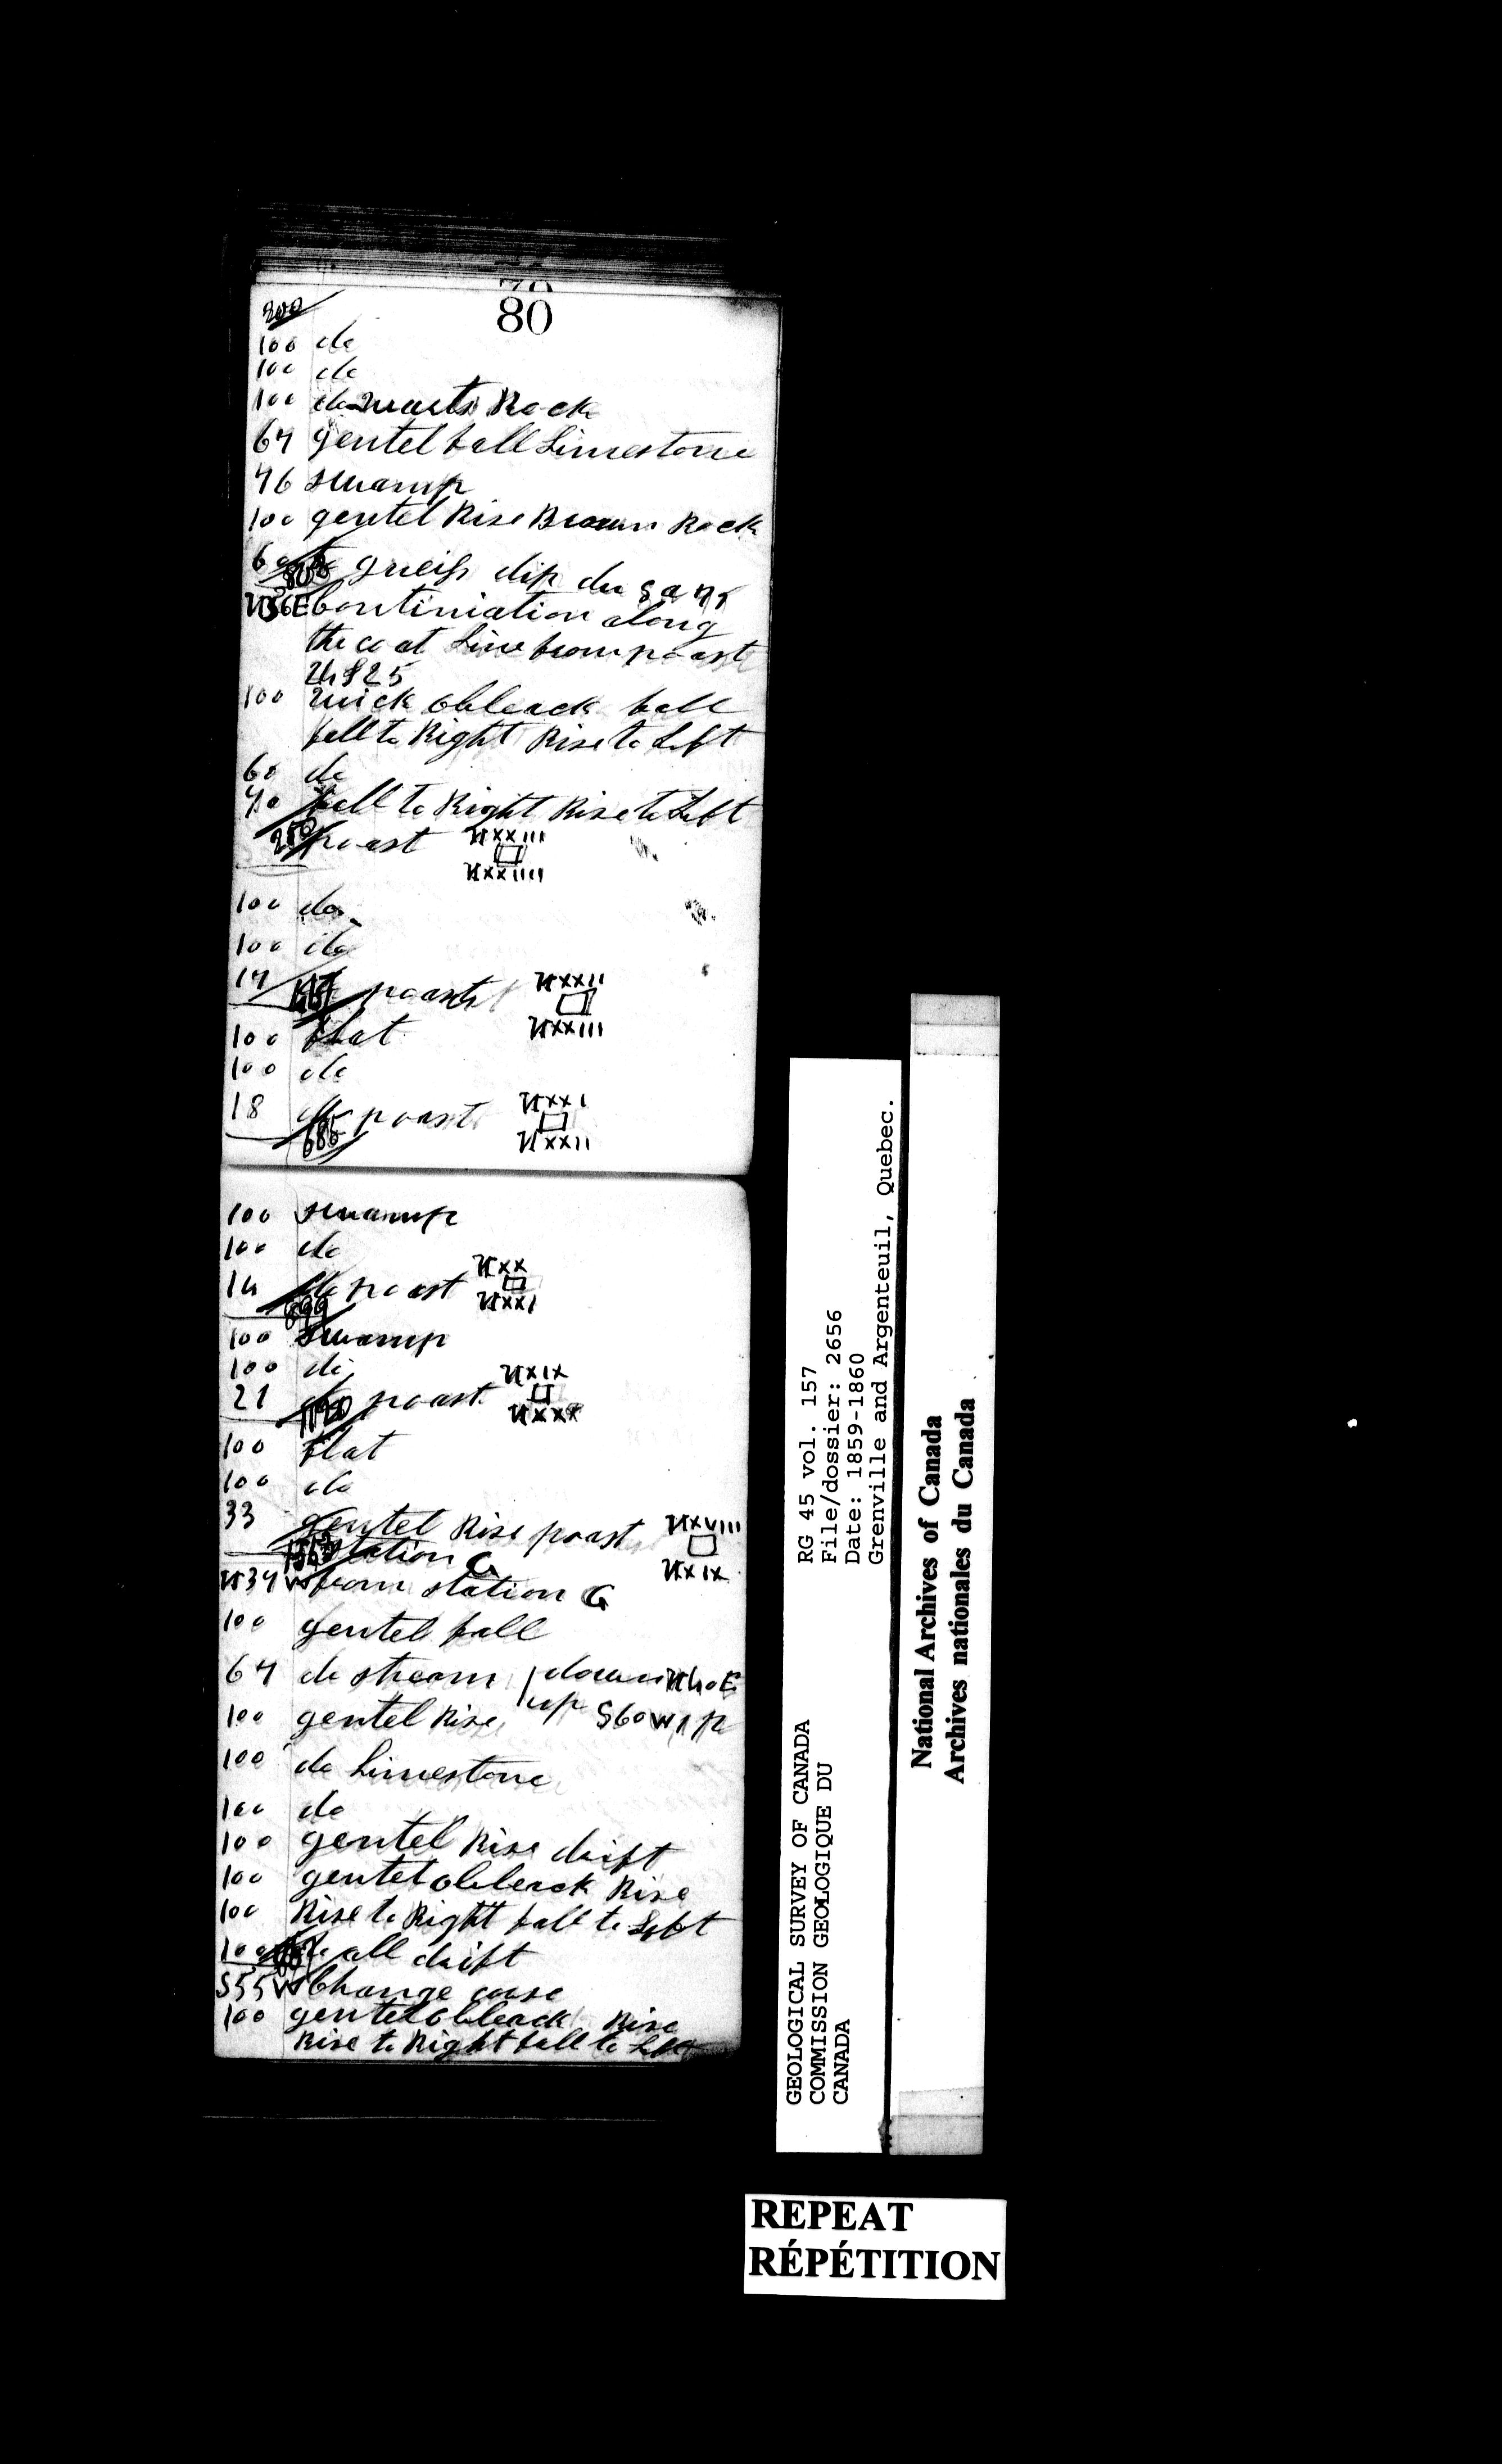 80
800
100 do
100 do
100 do quarts Rock
64 gentel fall Limestone
46 swamp
100 gentel Rise Brown Rock
60 gneiss dip du
N56E Continiation along
the co at Line from poast
24 & 25
100 quick obleack fall
fall to Right Rise to Left
60 do
40 fall to Right Rise to Left
250 poast NXXIII
NXXIIII
100 do
100 do
17 do poast NXXII
NXXIII
100 flat
100 do
18 do poast NXXI
685 NXXII
100 swamp
100 do
14 do poast NXX
899 NXXI
100 swamp
100 do
21 do poast NXIX
1120 NXX
100 flat
100 do
33 gentel Rise poast NXVIII
station G NXIX
N34W from station G
100 gentel fall
64 do stream down N40E
100 gentel Rise up S60W up
100 do Limestone
100 do
100 gentel Rise drift
100 gentel obleack Rise
100 Rise to Right fall to Left
100 do all drift
S55W Change corse
100 gentel obleack Rise
Rise to Right fall to Left
GEOLOGICAL SURVEY OF CANADA
COMMISSION GEOLOGIQUE DU
CANADA
RG 45 vol. 157
File/dossier: 2656
Date: 1859-1860
Grenville and Argenteuil, Quebec.
National Archives of Canada
Archives nationales du Canada
REPEAT
RÉPÉTITION